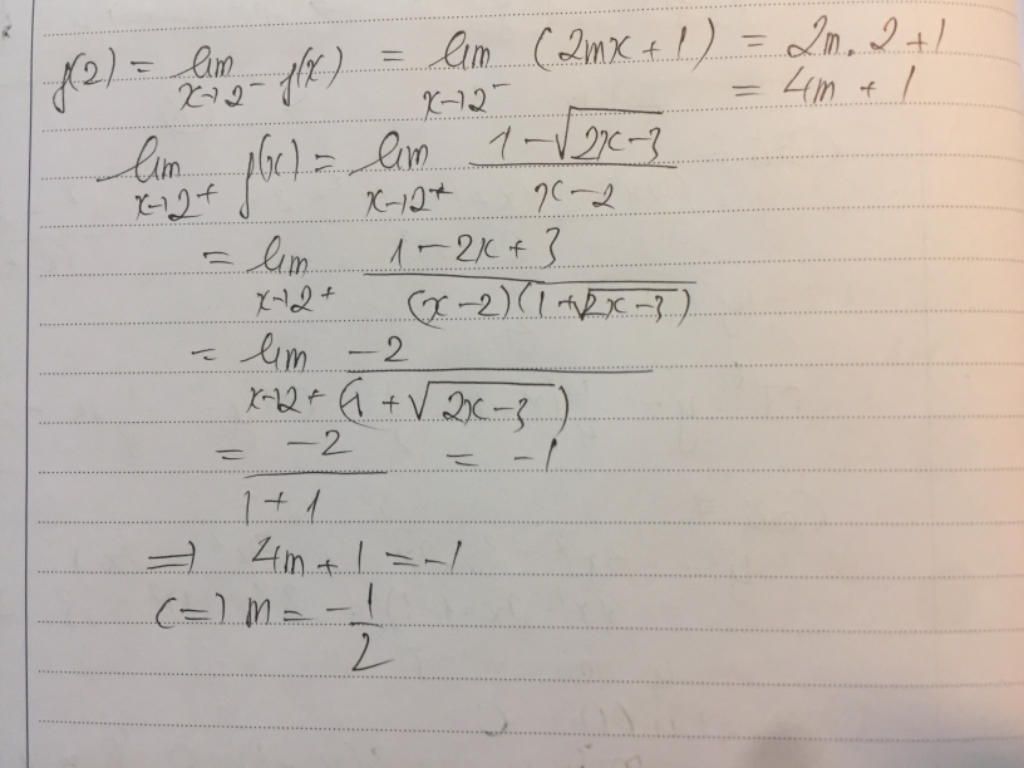 f(2) = lim x→2⁻ f(x) = lim x→2⁻ (2mx + 1) = 2m . 2 + 1
= 4m + 1
lim x→2⁺ f(x) = lim x→2⁺ (1 − √(2x − 3)) / (x − 2)
= lim x→2⁺ (1 − 2x + 3) / ((x − 2)(1 + √(2x − 3)))
= lim x→2⁺ −2 / (1 + √(2x − 3))
= −2 / (1 + 1) = −1
⇒ 4m + 1 = −1
⇔ m = −1/2